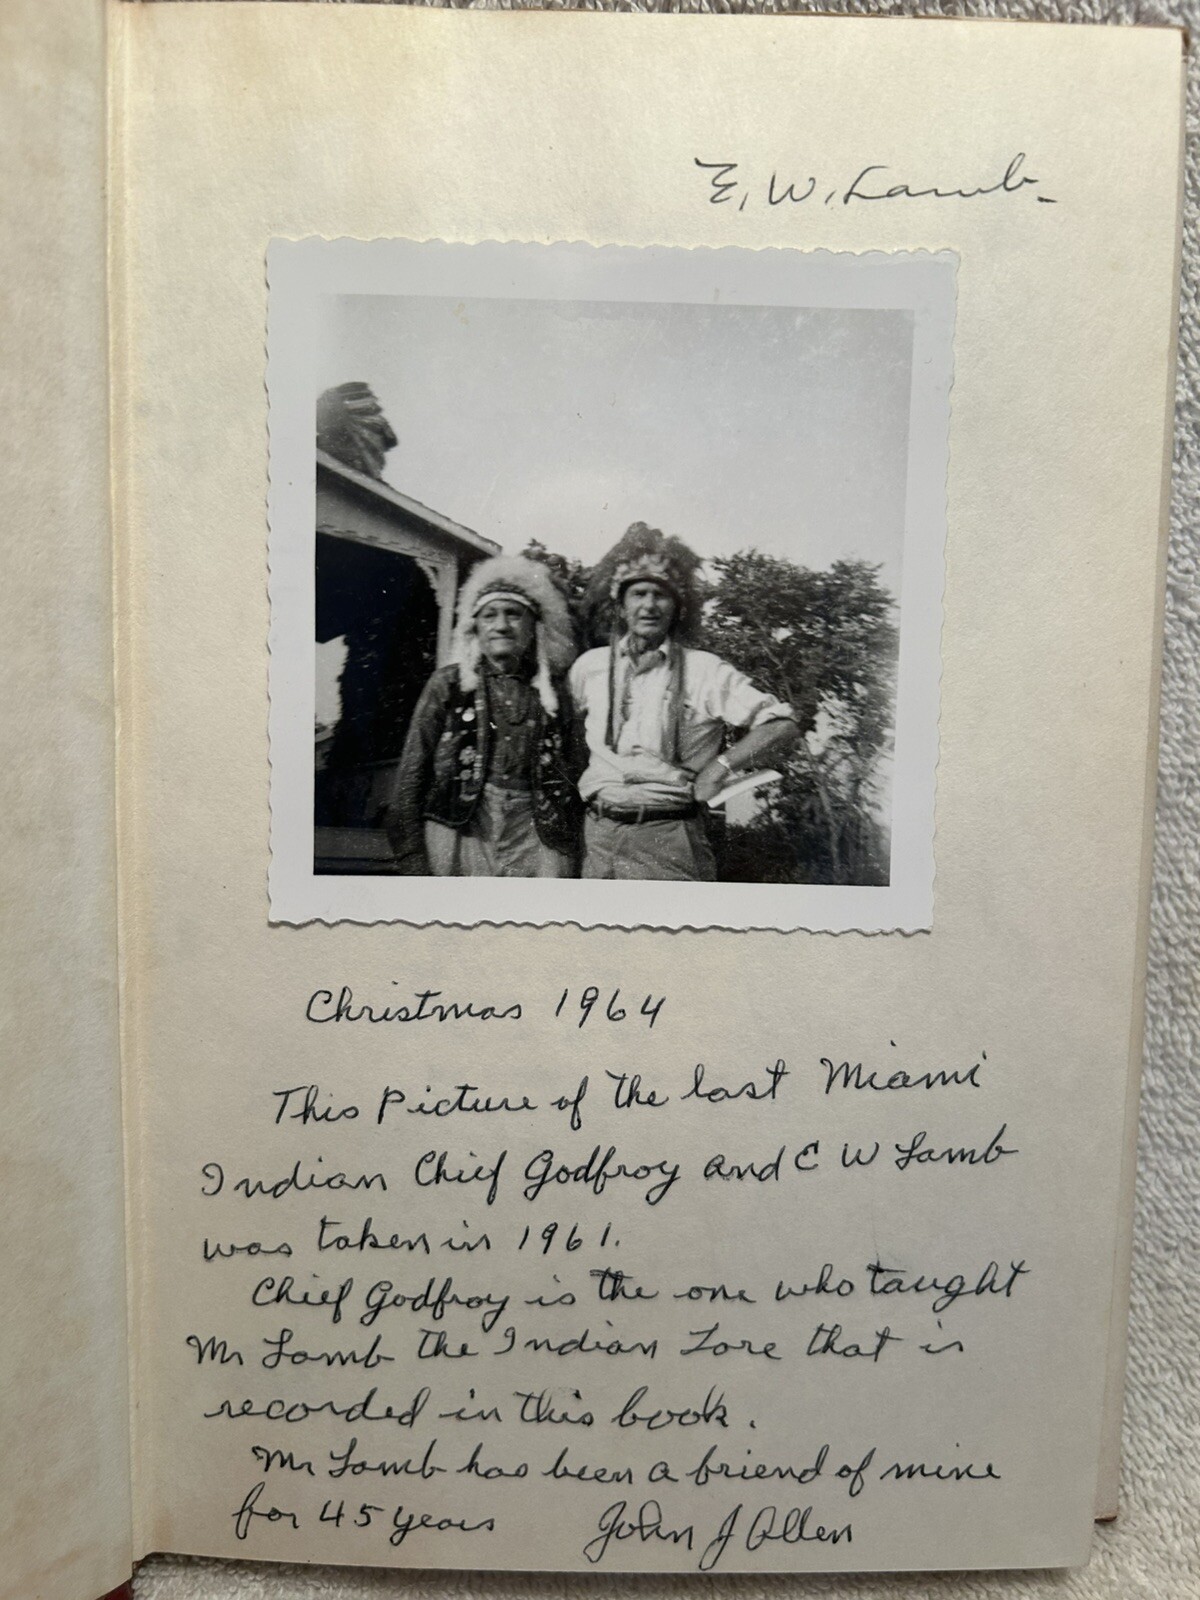 E. W. Lamb.
Christmas 1964
This Picture of the last Miami
Indian Chief Godfroy and E W Lamb
was taken in 1961.
Chief Godfroy is the one who taught
Mr Lamb the Indian Lore that is
recorded in this book.
Mr Lamb has been a friend of mine
for 45 years John J Allen